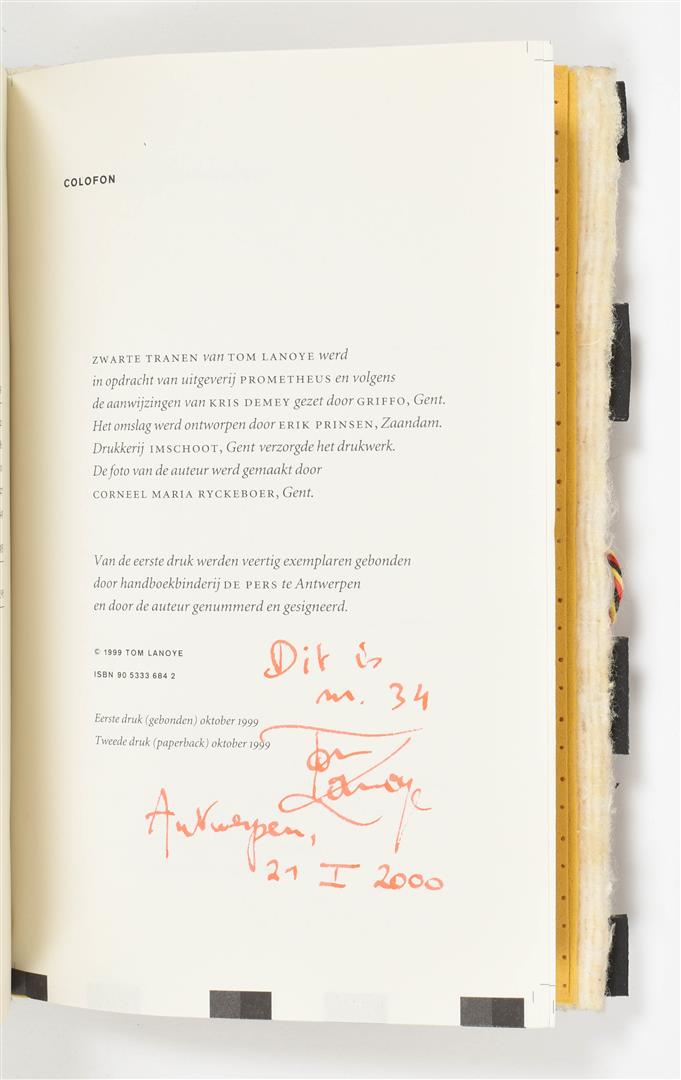 COLOFON
ZWARTE TRANEN van TOM LANOYE werd
in opdracht van uitgeverij PROMETHEUS en volgens
de aanwijzingen van KRIS DEMEY gezet door GRIFFO, Gent.
Het omslag werd ontworpen door ERIK PRINSEN, Zaandam.
Drukkerij IMSCHOOT, Gent verzorgde het drukwerk.
De foto van de auteur werd gemaakt door
CORNEEL MARIA RYCKEBOER, Gent.
Van de eerste druk werden veertig exemplaren gebonden
door handboekbinderij DE PERS te Antwerpen
en door de auteur genummerd en gesigneerd.
© 1999 TOM LANOYE
ISBN 90 5333 684 2
Eerste druk (gebonden) oktober 1999
Tweede druk (paperback) oktober 1999
Dit is
nr. 34
Tom
Lanoye
Antwerpen,
21 I 2000